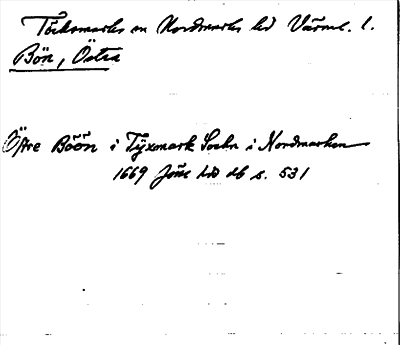 Töcksmarks sn Nordmarks hd Värml. l.
Bön, Östra
Öfre Böön i Tyxmark Sockn i Nordmarken
1669 Jöns hd db s. 531